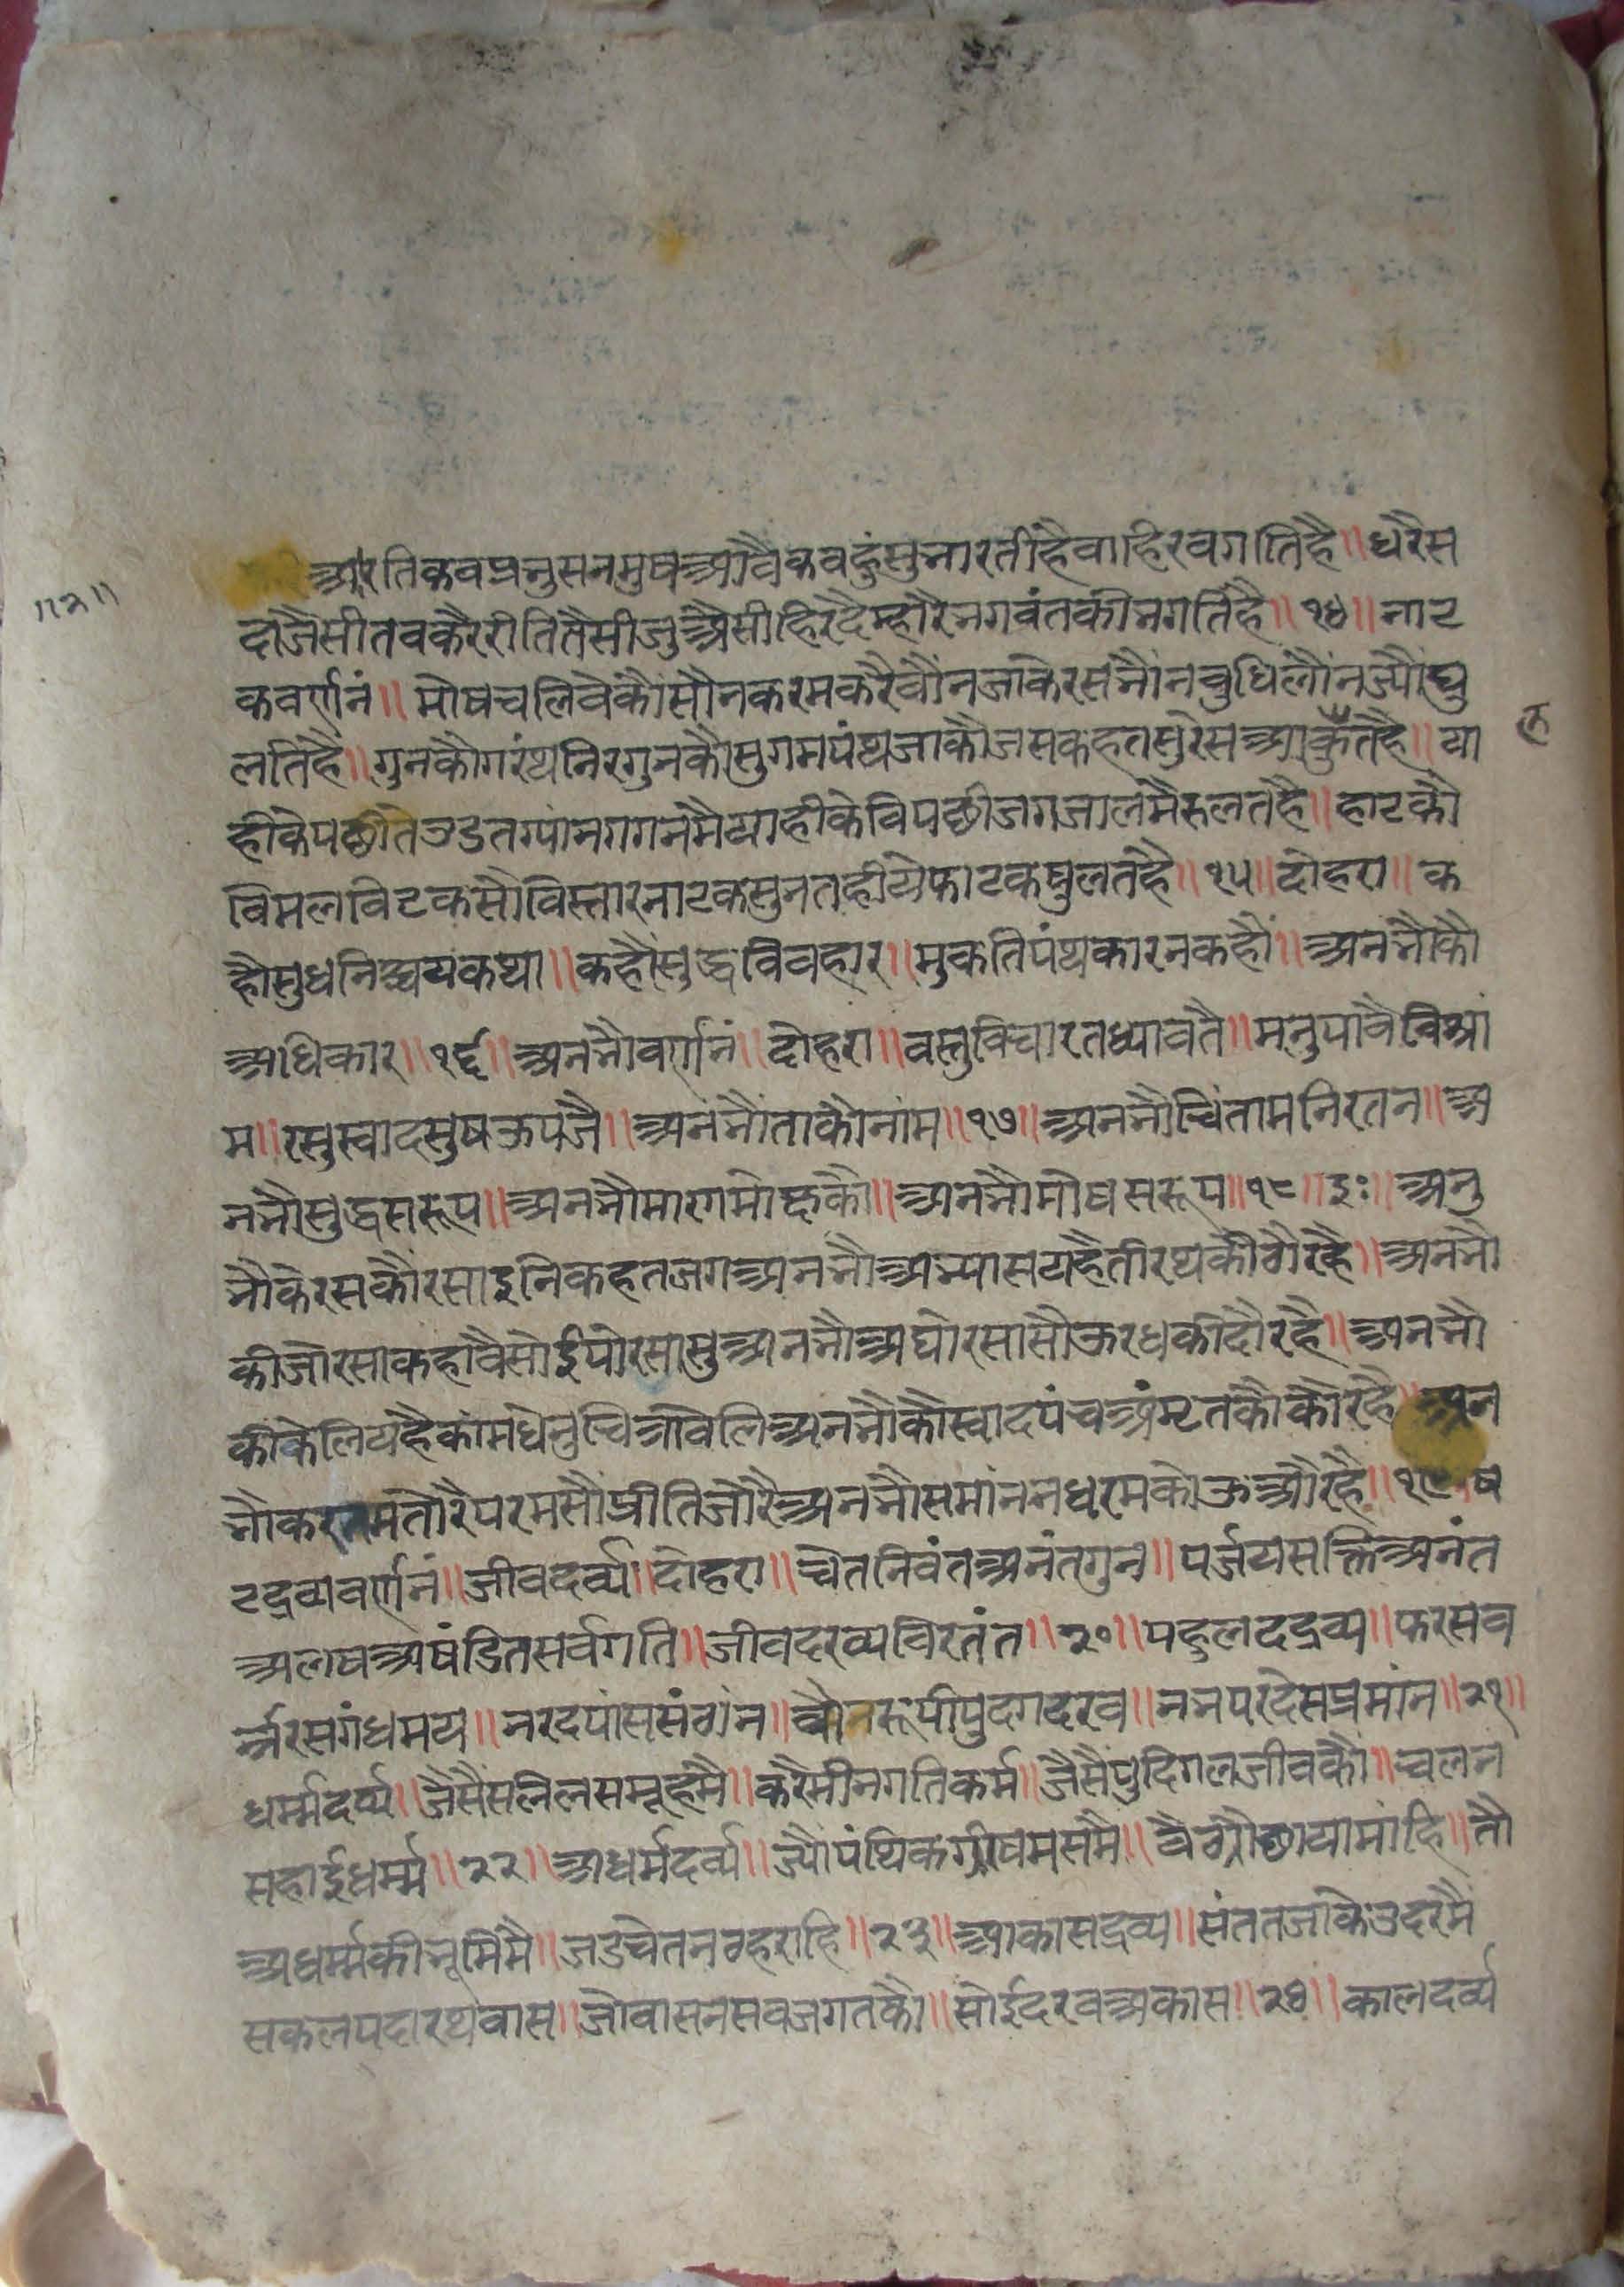 आरतिकवप्रभुसनमुषआवैकवहुंसुभारतीहैवाहिरवगतिहै॥धरैस
॥२॥
दाजैसीतवकरैरीतितैसीजुऔसीहिरदैम्हारैभगवंतकीभगतिहै॥१४॥नाट
कवर्णनं॥मोषचलिवेकौंसौंनकरमकरैवौंनजाकैरसभौंनवुधिलौंनज्यौंघु
लतिहै॥गुनकौगरंथनिरगुनकौसुगमपंथजाकौजसकहतसुरेसआकुतहै॥या
ल
हीकेपछीतेउडतग्यांनगगनमैयाहीकेविपछीजगजालमैरुलतहै॥हाटकौ
विमलविटकसौविस्तारनाटकसुनतहीयेफाटकषुलतहै॥१५॥दोहरा॥क
हौसुधनिह्चयकथा॥कहौंसुद्धविवहार॥मुकतिपंथकारनकहौं॥अनभौकौ
अधिकार॥१६॥अनभौवर्णनं॥दोहरा॥वस्तुविचारतध्यावतै॥मनुपावैविश्रां
म॥रसुस्वादसुषऊपजै॥अनंभौंताकौनांम॥१७॥अनभौचिंतामनिरतन॥अ
नभौसुद्धसरूप॥अनभौमारगमोक्षकौ॥अनभौमोषसरूप॥१८॥इः॥अनु
भौकेरसकौंरसाइनिकहतजगअनभौअभ्यासयहैतीरथकीठौरहै॥अनभौ
कीजौरसाकहावैसोईपोरसासुअनभौअघोरसासौऊरधकीदौरहै॥अनभौ
कीकेलियहैकांमधेनुचित्रावेलिअनभौकौस्वादपंचअंमृतकौकौरहै॥अन
भौकरममतोरैपरमसौप्रीतिजोरैअनभौसमांननधरमकोऊऔरहै॥१९॥ष
टद्रव्यवर्णनं॥जीवदर्व्य॥दोहरा॥चेतनिवंतअनंतगुन॥पर्जयसक्तिअनंत
अलषअषंडितसर्वगति॥जीवदरव्यविरतंत॥२०॥पद्गुलदद्रव्य॥फरसव
र्न्नरसगंधमय॥नरदपांससंठांन॥वौनरूपीपुदगदरव॥नभपरदेसप्रमांन॥२१॥
धर्म्मदर्व्य॥जैसैंसलिलसमूहमै॥करैमीनगतिकर्म॥जैसैंपुदिगलजीवकौं॥चलन
सहाईधर्म्म॥२२॥अधर्मदर्व्य॥ज्यौंपंथिकग्रीषमसमै॥वैठौछायामांहि॥तौं
अधर्म्मकीभूमिमै॥जडचेतनठहरांहि॥२३॥आकासद्रव्य॥संततजाकेउदरमै
सकलपदारथवास॥जोवासनसवजगतकौ॥सोईदरवअकास॥२४॥कालदर्व्य